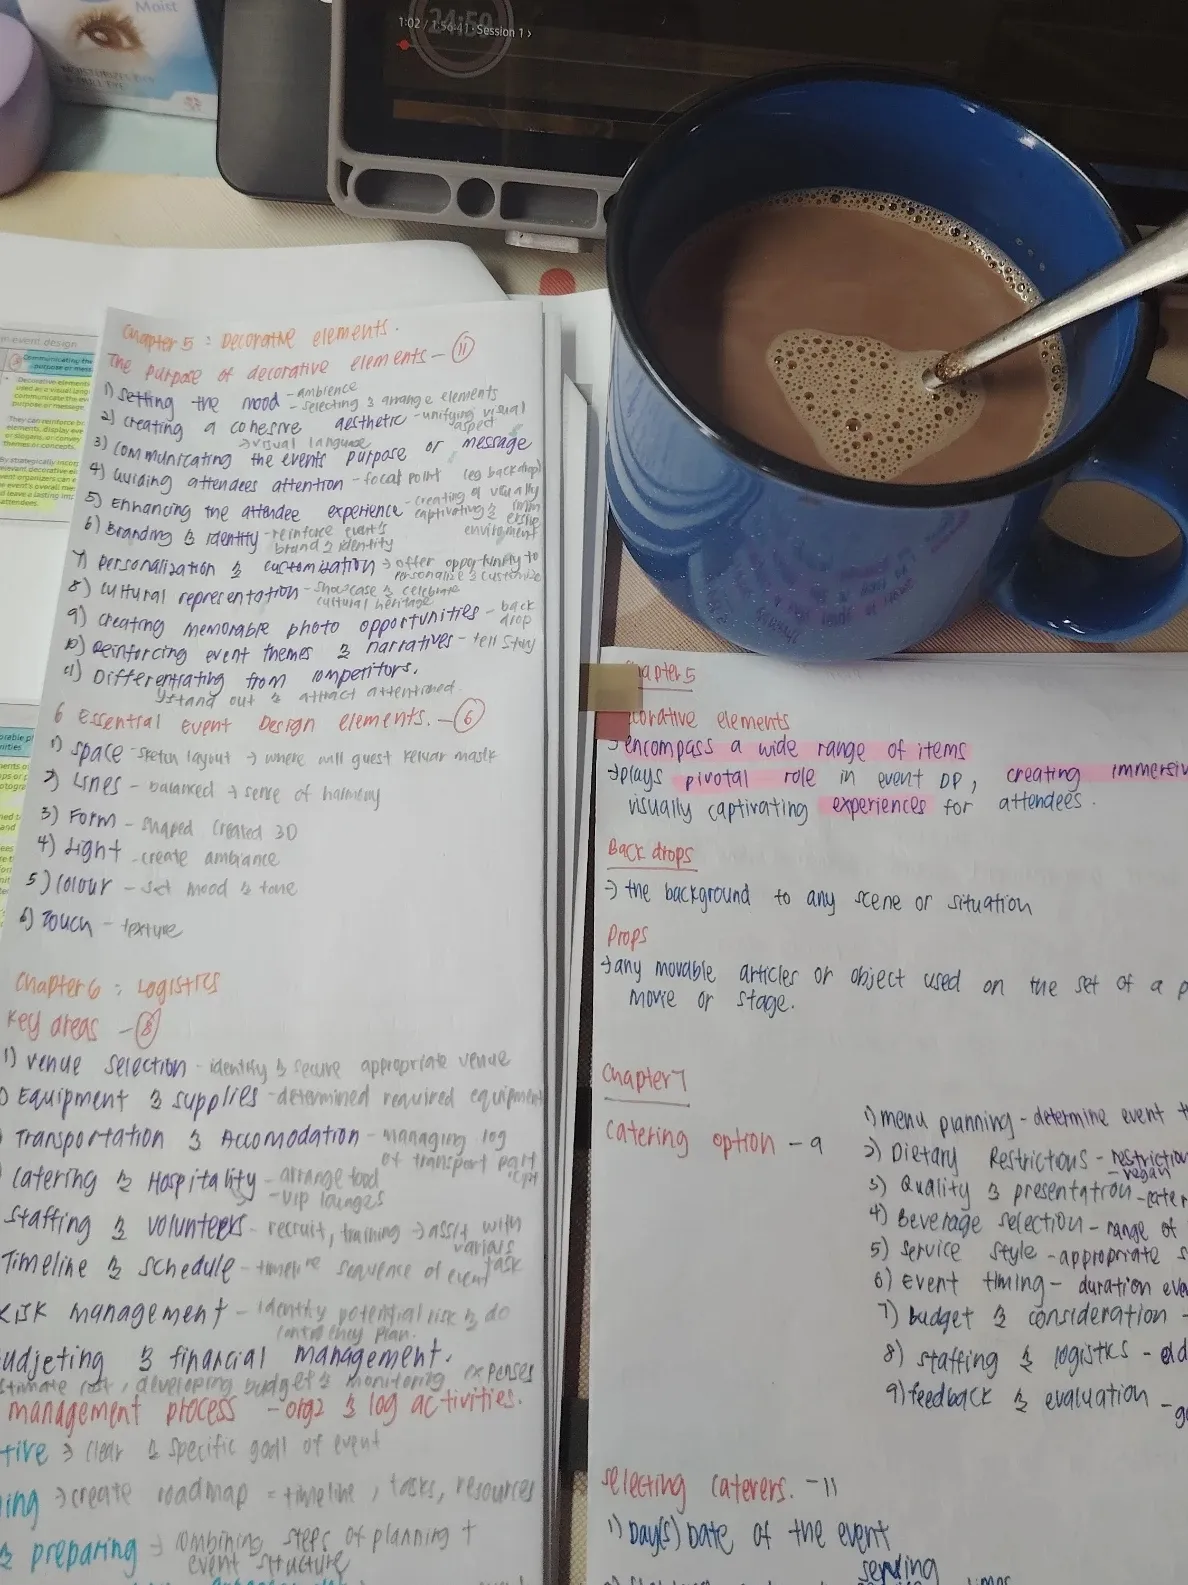 Moist
1:02 / 1:56:41 · Session 1 >
24:50
event design
Communicating the
purpose or mess
Decorative elements
used as a visual lang
communicate the ev
purpose or message
They can reinforce b
attendees.
Chapter 5 : Decorative elements.
The purpose of decorative elements - 11
1) setting the mood - ambience
- selecting & arrange elements
2) creating a cohesive aesthetic - unifying visual
aspect
→ visual language
3) communicating the events purpose or message
4) Guiding attendees attention - focal point (eg backdrop)
5) Enhancing the attendee experience - creating a visually
captivating & imm
ersive
enviroment
6) Branding & identity - reinforce event's
brand & identity
7) personalization & customization → offer opportunity to
personalize & customize
8) cultural representation - showcase & celebrate
cultural heritage
9) creating memorable photo opportunities - back
drop
10) Reinforcing event themes & narratives - tell story
11) Differentiating from competitors.
↳ stand out & attract
6 Essential Event Design elements. - 6
1) space - sketch layout → where will guest keluar masuk
2) Lines - balanced → sense of harmony
3) Form - shaped created 3D
4) Light - create ambiance
5) colour - set mood & tone
6) Touch - texture
Chapter 6 : Logistics
Key areas - 8
1) venue selection - identify & secure appropriate venue
) Equipment & supplies - determined required equipment
) Transportation & Accomodation - managing log
of transport part
icpt
) catering & Hospitality - arrange food
- VIP lounges
staffing & volunteers - recruit, training → assit with
task
Timeline & schedule - timeline sequence of event
risk management - identify potential risk & do
plan.
udjeting & financial management.
stimate cost, developing budget & monitoring expenses
management process - org2 & log activities.
tive → clear & specific goal of event
ing → create roadmap = timeline, tasks, resources
& preparing → combining steps of planning +
event structure
hapter 5
corative elements
→ encompass a wide range of items
→ plays pivotal role in event DP, creating immersiv
visually captivating experiences for attendees.
Back drops
→ the background to any scene or situation
Props
→ any movable articles or object used on the set of a p
movie or stage.
Chapter 7
catering option - 9
1) menu planning - determine event t
2) Dietary Restrictions - restriction
- vegan
3) Quality & presentation - cater
4) Beverage selection - range of
5) service style - appropriate s
6) Event timing - duration eve
7) budget & consideration -
8) staffing & logistics - add
9) feedback & evaluation - g
selecting caterers. - 11
1) Day(s) Date of the event
sending